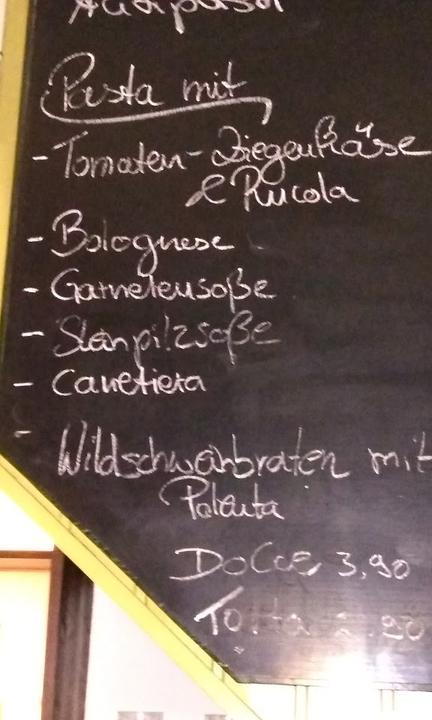 Pasta mit
- Tomaten-Ziegenkäse
& Rucola
- Bolognese
- Garnelensoße
- Steinpilzsoße
- Carretiera
-
Wildschweinbraten mit
Polenta
DOLCE 3,90
Torta 2.90